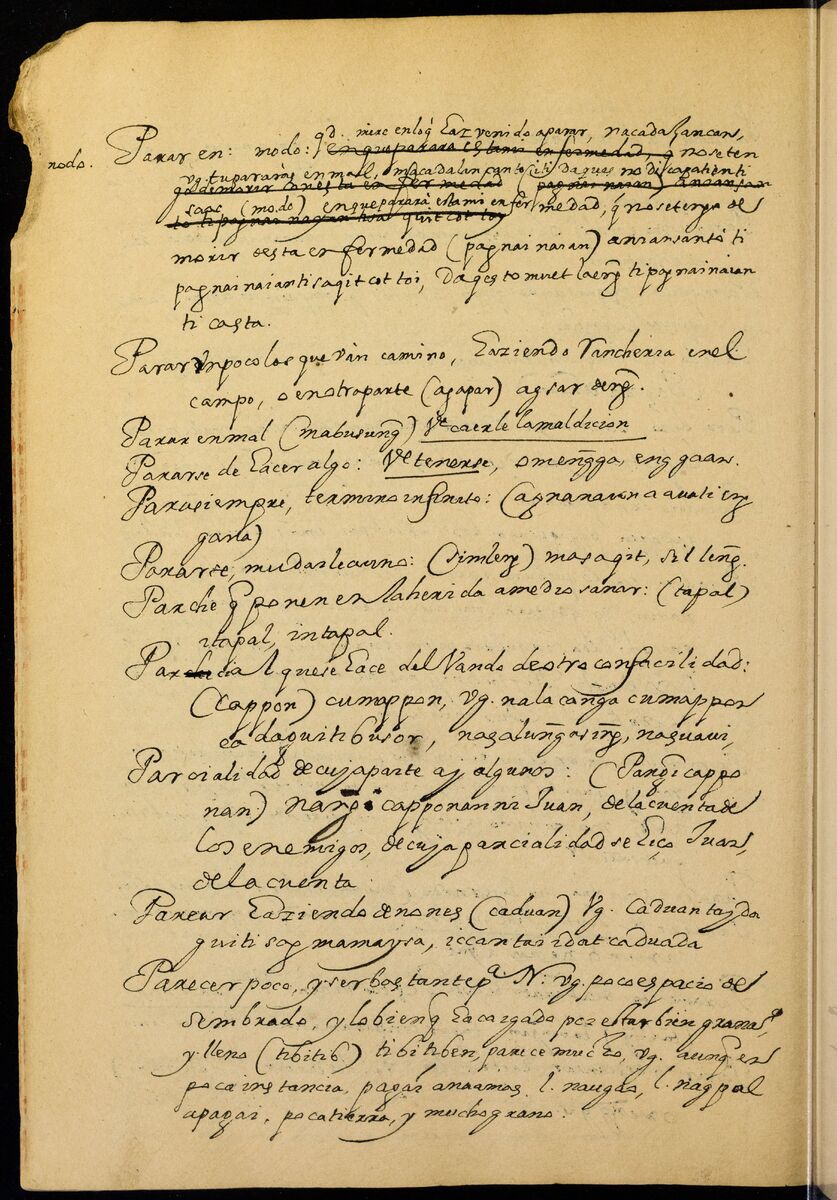 nodo.
qd. mire enloq̃ Eaz venido aparar, nacadaLancans,
Parar en: modo: enqueparara estami enfermedad, q̃ noseten
vg. tupararas en mal, macadalancanto daques no
gademorir enesta enfermedad (pagnai naian) aniansan
saac (modo) enqueparará estami enfermedad, q̃ nosetenga de
to ti pagnai nayan tisa quit cot toy
morir desta enfermedad (pagnai naian) aniansantó ti
pagnainaiantisaqit cot toi, Daqesto muet laeng̃ tipagnainaian
ti casta.
Parar Vnpoco los que ván camino, Eaziendo Rancheria enel
campo, o en otra parte (agapar) agsardeng̃.
Parar enmal (mabusung̃) Ve caerle lamaldicion
Pararse de Eacer algo: Ve tenerse, omeng̃ga, enggaan.
Parasiempre, termino infinito: (agnanaion a auati eng̃
gana)
Pararse, mudarleauno: (simleng̃) masaqit, silleng̃.
Parche q̃ ponen en laherida amedio sanar: (tapal)
itapal, intapal.
Parcial quese Eace del Vando deotro confacilidad:
(Cappon) cumappon, vg. nalacan̄ga cumappon
ca daguitibusor, nasalun̄gasing̃, nasuaui,
Parcialidad decujaparte aj algunos: (Pang̃icappo
nan) nang̃icapponanni Juan, delacuentade
los enemigos, decuja parcialidad se Eiço Juan,
delacuenta
Parear Eaziendo denones (caduan) Vg. caduantaida
guiti sag̃mamaysa, iccantaidat caduada
Parecer poco, y ser bastante pa. N: vg. poco espacio de
sembrado, y lo bienq̃ Eacargado por estar bien granado,
y lleno (tibitib) tibitiben, parece mucho, vg. aunq̃ en
poca instancia, pagai anaamos l. naugao, l. nag̃pal
apagai, pocatierra, y muchograno.